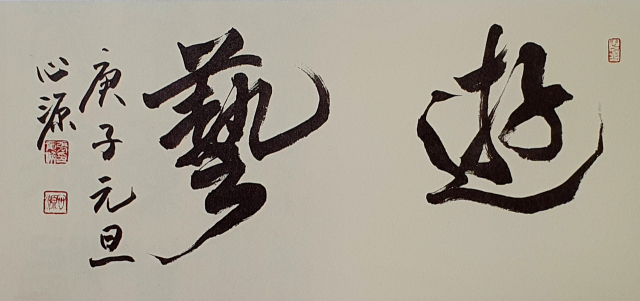 遊藝
庚子元旦
心源